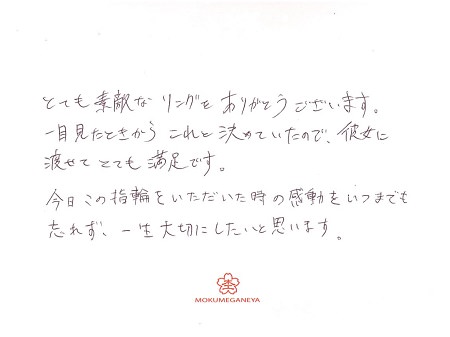 とても素敵なリングをありがとうございます。
一目見たときからこれと決めていたので、彼女に
渡せてとても満足です。
今日この指輪をいただいた時の感動をいつまでも
忘れず、一生大切にしたいと思います。
MOKUMEGANEYA